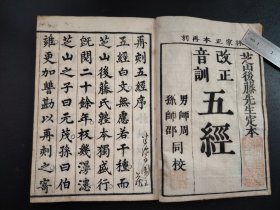 林家正本再刻
芝山後藤先生定本
改正
音訓
五經
男師周
孫師邵
同校
再刻五經序
五經白文無慮若干種而
芝山後藤氏鞍本獨盛行
既閱二十餘年板幾漫漶
芝山之子曰元茂孫曰伯
誰更加讐勘以再刻之寄